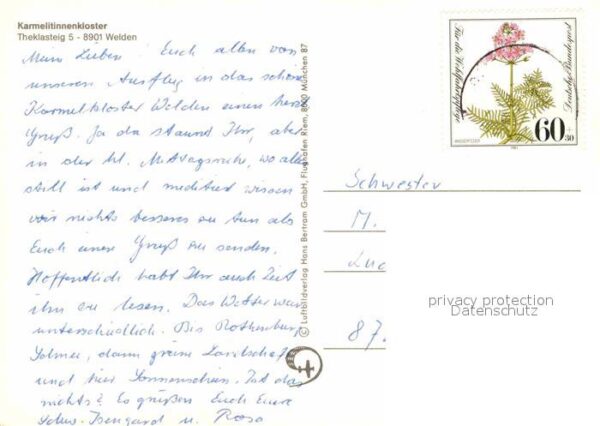 Karmelitinnenkloster
Theklasteig 5 - 8901 Welden
Mein Lieben! Euch allen von
unserem Ausflug in das schöne
Karmelkloster Welden einen herzl.
Gruß. Ja da staunt Ihr, aber
in der hl. Mittagsruhe, wo alles
still ist und meditiert wissen
wir nichts besseres zu tun als
Euch einen Gruß zu senden.
Hoffentlich habt Ihr auch Zeit
ihn zu lesen. Das Wetter war
unterschiedlich. Bis Rothenburg
dann grüne Landschaft
und hier Sonnenschein. Ist das
nichts? Es grüßen Euch Eure
Schw. Isengard u. Rosa
© Luftbildverlag Hans Bertram GmbH, Flughafen Riem, 8000 München 87
Für die Wohlfahrtspflege
Deutsche Bundespost
60
+30
1981
Schwester
M.
Luc
87.
privacy protection
Datenschutz